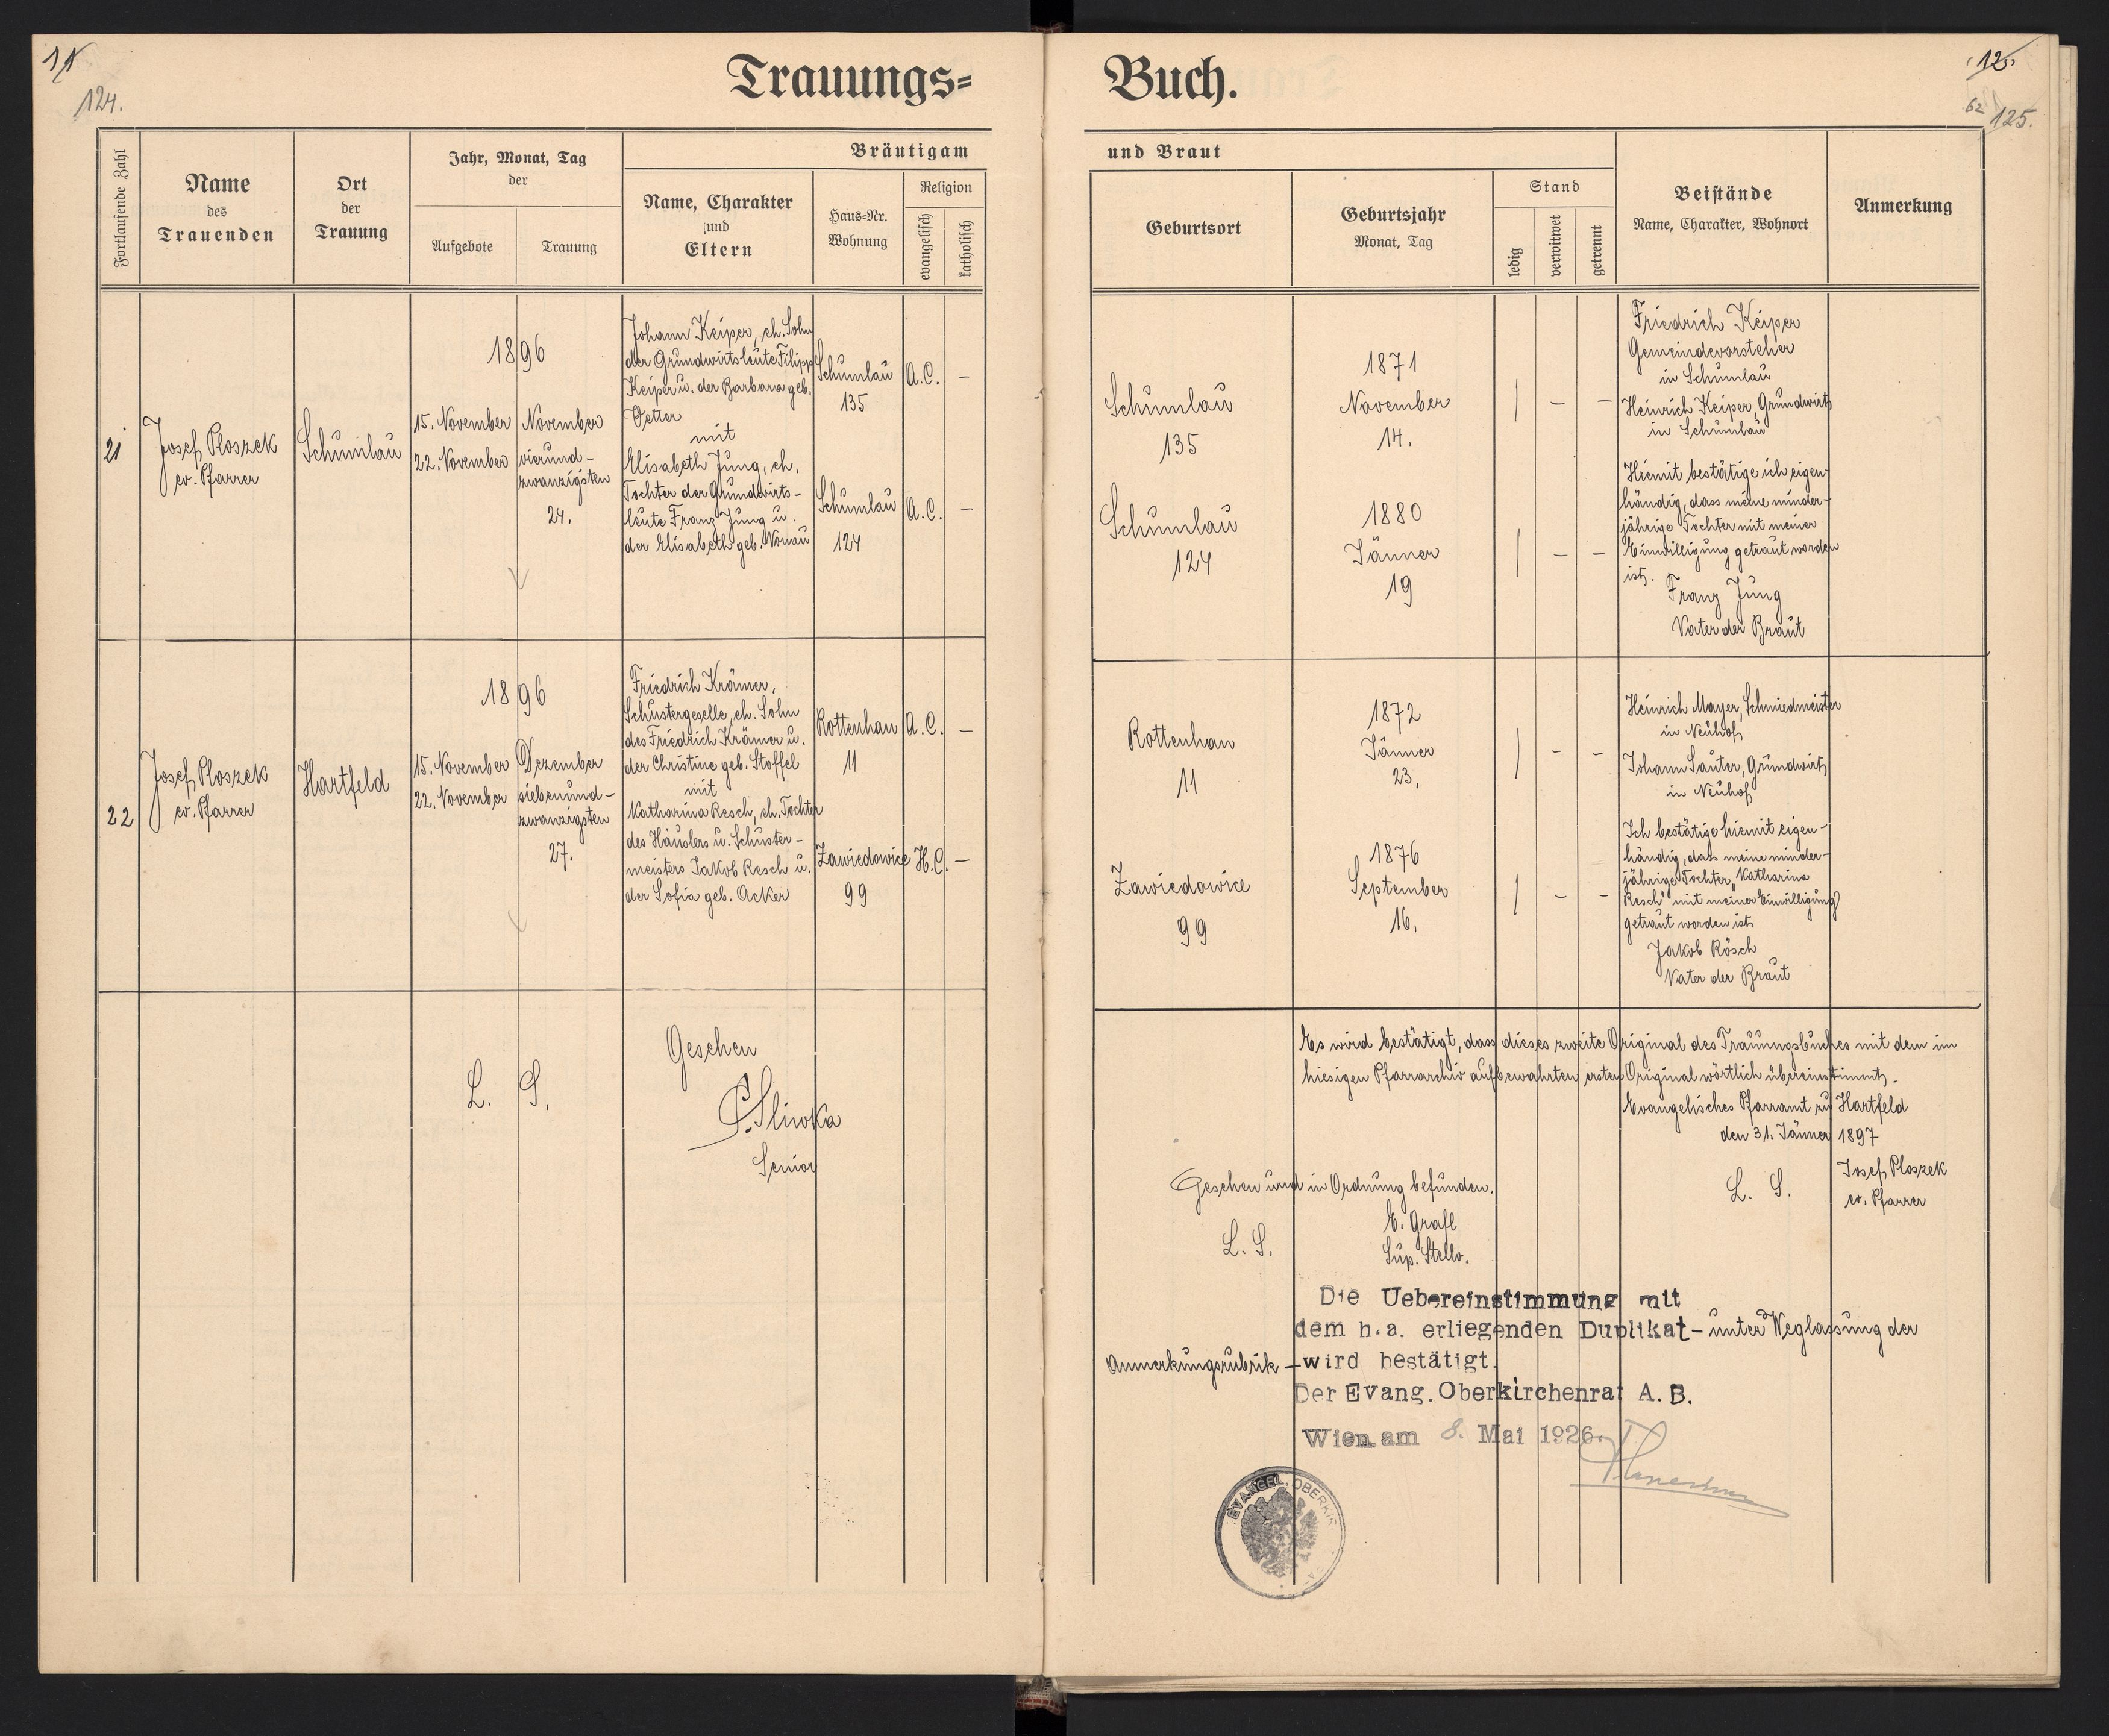 11
124.
Trauungs=
Fortlaufende Zahl
Name
des
Trauenden
Ort
der
Trauung
Jahr, Monat, Tag
der
Aufgebote
Trauung
Bräutigam
Name, Charakter
und
Eltern
Haus=Nr.
Wohnung
Religion
evangelisch
katholisch
21
Josef Ploszek
ev. Pfarrer
Schumlau
1896
15. November
22. November
November
vierund-
zwanzigsten
24.
Johann Keiper, eh. Sohn
der Grundwirtsleute Filipp
Keiper u. der Barbara geb.
Vetter
mit
Elisabeth Jung, eh.
Tochter der Grundwirts-
leute Franz Jung u.
der Elisabeth geb. Wonau
Schumlau
135
A.C.
–
Schumlau
124
A.C.
–
22
Josef Ploszek
ev. Pfarrer
Hartfeld
1896
15. November
22. November
Dezember
siebenund-
zwanzigsten
27.
Friedrich Krämer,
Schustergeselle, eh. Sohn
des Friedrich Krämer u.
der Christine geb. Stoffel
mit
Katharina Resch, eh. Tochter
des Häuslers u. Schuster-
meisters Jakob Resch u.
der Sofia geb. Acker
Rottenhan
11
A.C.
–
Zawiedowice
99
H.C.
–
L. S.
Gesehen
Sliwka
Senior
Buch.
12
62
125.
und Braut
Geburtsort
Geburtsjahr
Monat, Tag
Stand
ledig
verwitwet
getrennt
Beistände
Name, Charakter, Wohnort
Anmerkung
Schumlau
135
1871
November
14.
| – –
Friedrich Keiper
Gemeindevorsteher
in Schumlau
Heinrich Keiper, Grundwirt
in Schumlau
Schumlau
124
1880
Jänner
19
| – –
Hiemit bestätige ich eigen-
händig, dass meine minder-
jährige Tochter mit meiner
Einwilligung getraut worden
ist.
Franz Jung
Vater der Braut
Rottenhan
11
1872
Jänner
23.
| – –
Heinrich Mayer, Schmiedmeister
in Neuhof
Johann Sauter, Grundwirt
in Neuhof
Zawiedowice
99
1876
September
16.
| – –
Ich bestätige hiemit eigen-
händig, dass meine minder-
jährige Tochter „Katharina
Resch" mit meiner Einwilligung
getraut worden ist
Jakob Rösch
Vater der Braut
Es wird bestätigt, dass dieses zweite Original des Trauungsbuches mit dem im
hiesigen Pfarrarchiv aufbewahrten ersten Original wörtlich übereinstimmt.
Evangelisches Pfarramt zu Hartfeld
den 31. Jänner 1897
L. S.
Josef Ploszek
ev. Pfarrer
Gesehen und in Ordnung befunden.
L. S.
E. Grafl
Sup. Stellv.
Die Uebereinstimmung mit
dem h.a. erliegenden Duplikat – unter Weglassung der
Anmerkungsrubrik – wird bestätigt.
Der Evang. Oberkirchenrat A. B.
Wien am 8. Mai 1926.
EVANGEL. OBERKIR